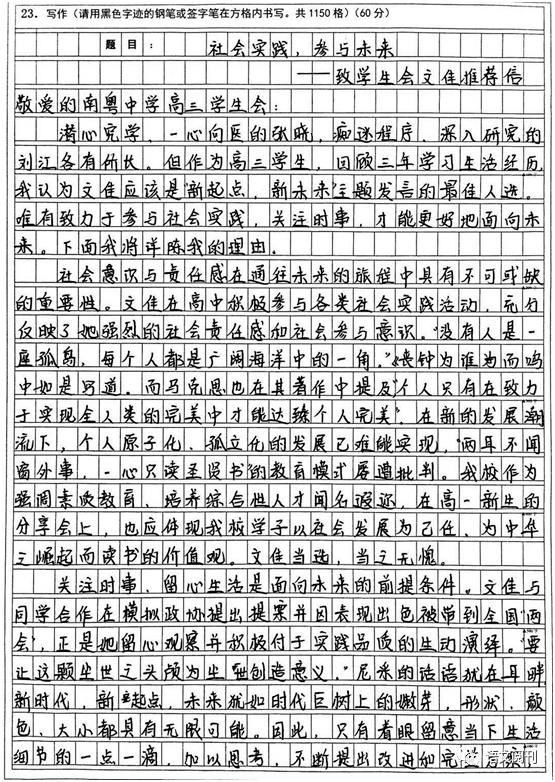 23. 写作（请用黑色字迹的钢笔或签字笔在方格内书写。共1150格）(60分)
题目：社会实践，参与未来
——致学生会文佳推荐信
敬爱的南粤中学高三学生会：
潜心究学、一心向医的张晓，痴迷程序、深入研究的
刘江各有所长。但作为高三学生，回顾三年学习生活经历，
我认为文佳应该是"新起点，新未来"主题发言的最佳人选。
唯有致力于参与社会实践，关注时事，才能更好地面向未
来。下面我将详陈我的理由。
社会意识与责任感在通往未来的旅程中具有不可或缺
的重要性。文佳在高中积极参与各类社会实践活动，充分
反映了她强烈的社会责任感和社会参与意识。"没有人是一
座孤岛，每个人都是广阔海洋中的一角。"《丧钟为谁而鸣》
中如是写道。而马克思也在其著作中提及"个人只有在致力
于实现全人类的完美中才能达臻个人完美"。在新的发展潮
流下，个人原子化、孤立化的发展已难能实现，"两耳不闻
窗外事，一心只读圣贤书"的教育模式屡遭批判。我校作为
强调素质教育、培养综合性人才闻名遐迩，在高一新生的
分享会上，也应体现我校学子以社会发展为己任、为中华
之崛起而读书的价值观。文佳当选，当之无愧。
关注时事、留心生活是面向未来的前提条件。文佳与
同学合作在模拟政协提出提案并因表现出色被带到全国"两
会"，正是她留心观察并积极付于实践品质的生动演绎。"要
让这颗尘世之头颅为尘世创造意义。"尼采的话语犹在耳畔，
新时代，新起点，未来犹如时代巨树上的嫩芽，形状、颜
色、大小都具有无限可能。因此，只有着眼留意当下生活
细节的一点一滴，加以思考，不断提出改进和完